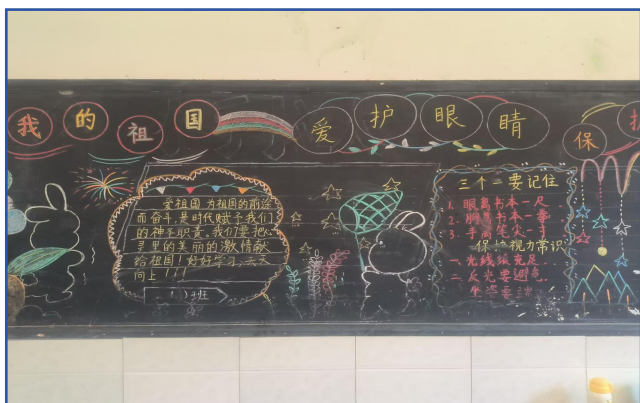 我的祖国
爱护眼睛
保护
爱祖国为祖国的前途
而奋斗是时代赋予我们
的神圣职责,我们要把心
灵里的美丽的激情献
给祖国!好好学习,天天
向上!!!
班
三个一要记住
1. 眼离书本一尺
2. 胸离书本一拳
3. 手离笔尖一寸
保护视力常识
一、光线须充足
二、反光要避免
坐姿要